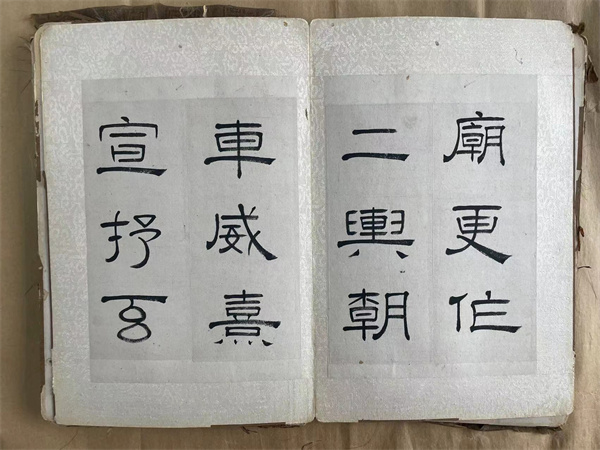 廟更作
二輿朝
車威熹
宣抒玄